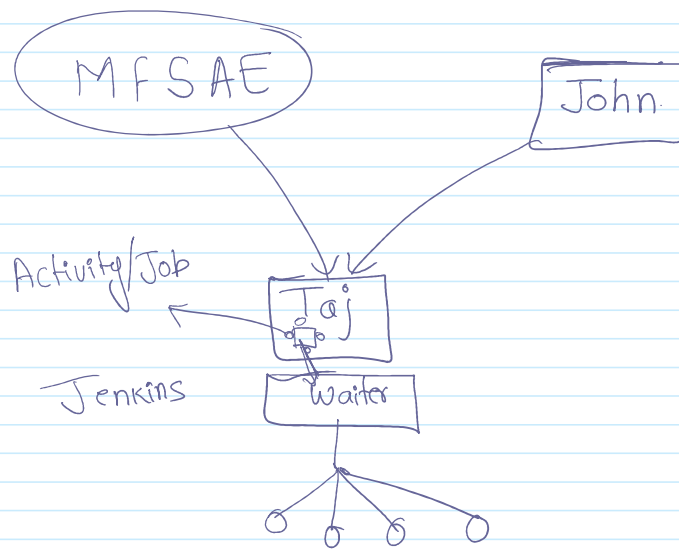 MFSAE
John
Activity/Job
Taj
Jenkins
Waiter